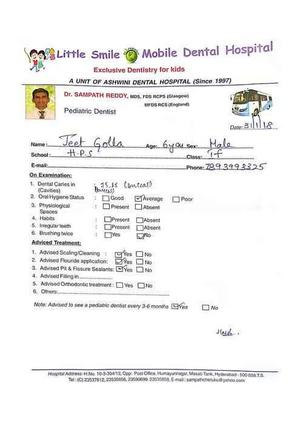 Little Smile Mobile Dental Hospital
Exclusive Dentistry for kids
A UNIT OF ASHWINI DENTAL HOSPITAL (Since 1997)
Dr. SAMPATH REDDY, MDS, FDS RCPS (Glasgow)
MFDS RCS (England)
Pediatric Dentist
Date: 31/1/18
Name: Jeet Golla Age: 6 year Sex: Male
School: H.P.S Class: I-F
E-mail: Phone: 7893993325
On Examination:
1. Dental Caries in (Cavities)
2. Oral Hygiene Status : Good Average Poor
3. Physiological Spaces : Present Absent
4. Habits : Present Absent
5. Irregular teeth : Present Absent
6. Brushing twice : Yes No
Adviced Treatment:
1. Advised Scaling/Cleaning : Yes No
2. Advised Flouride application: Yes No
3. Advised Pit & Fissure Sealants: Yes No
4. Advised Filling in
5. Advised Orthodontic treatment : Yes No
6. Others:
Note: Advised to see a pediatric dentist every 3-6 months Yes No
Hospital Address: H.No. 10-3-304/13, Opp: Post Office, Humayunnagar, Masab Tank, Hyderabad - 500 028.T.S.